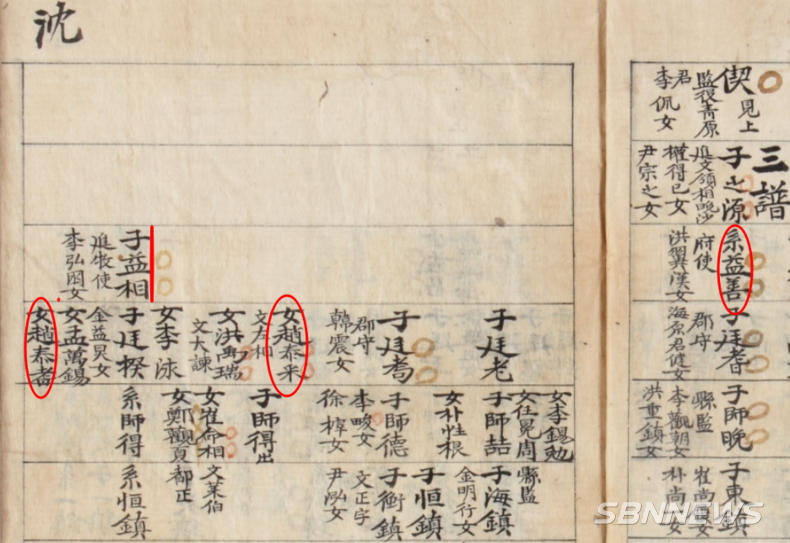 三譜
偰 見上
監役靑原
君
李佩女
子之源
進文領相晩沙
權得己女
尹宗之女
系益善
府使
洪翼漢女
子廷耆
郡守
海原君健女
子師晩
縣監
李觀朝女
洪重鎮女
子東鎮
崔尚女
朴尚
沈
子益相
進牧使
李弘囦女
子廷老
子廷耉
郡守
韓震女
女趙泰采
文左相
女洪禹瑞
文大諫
女李泳
子廷揆
金益炅女
女孟萬錫
女趙泰耉
女李錫勉
女任冕周
子師喆
女朴性根
子師德
李畯女
徐椁女
子師得出
女崔命相 文萊伯
女鄭觀夏 都正
系師得
縣監
子海鎮
金明行女
子恒鎮
子衡鎮
文正字
尹泓女
系恒鎮
SBNNEWS